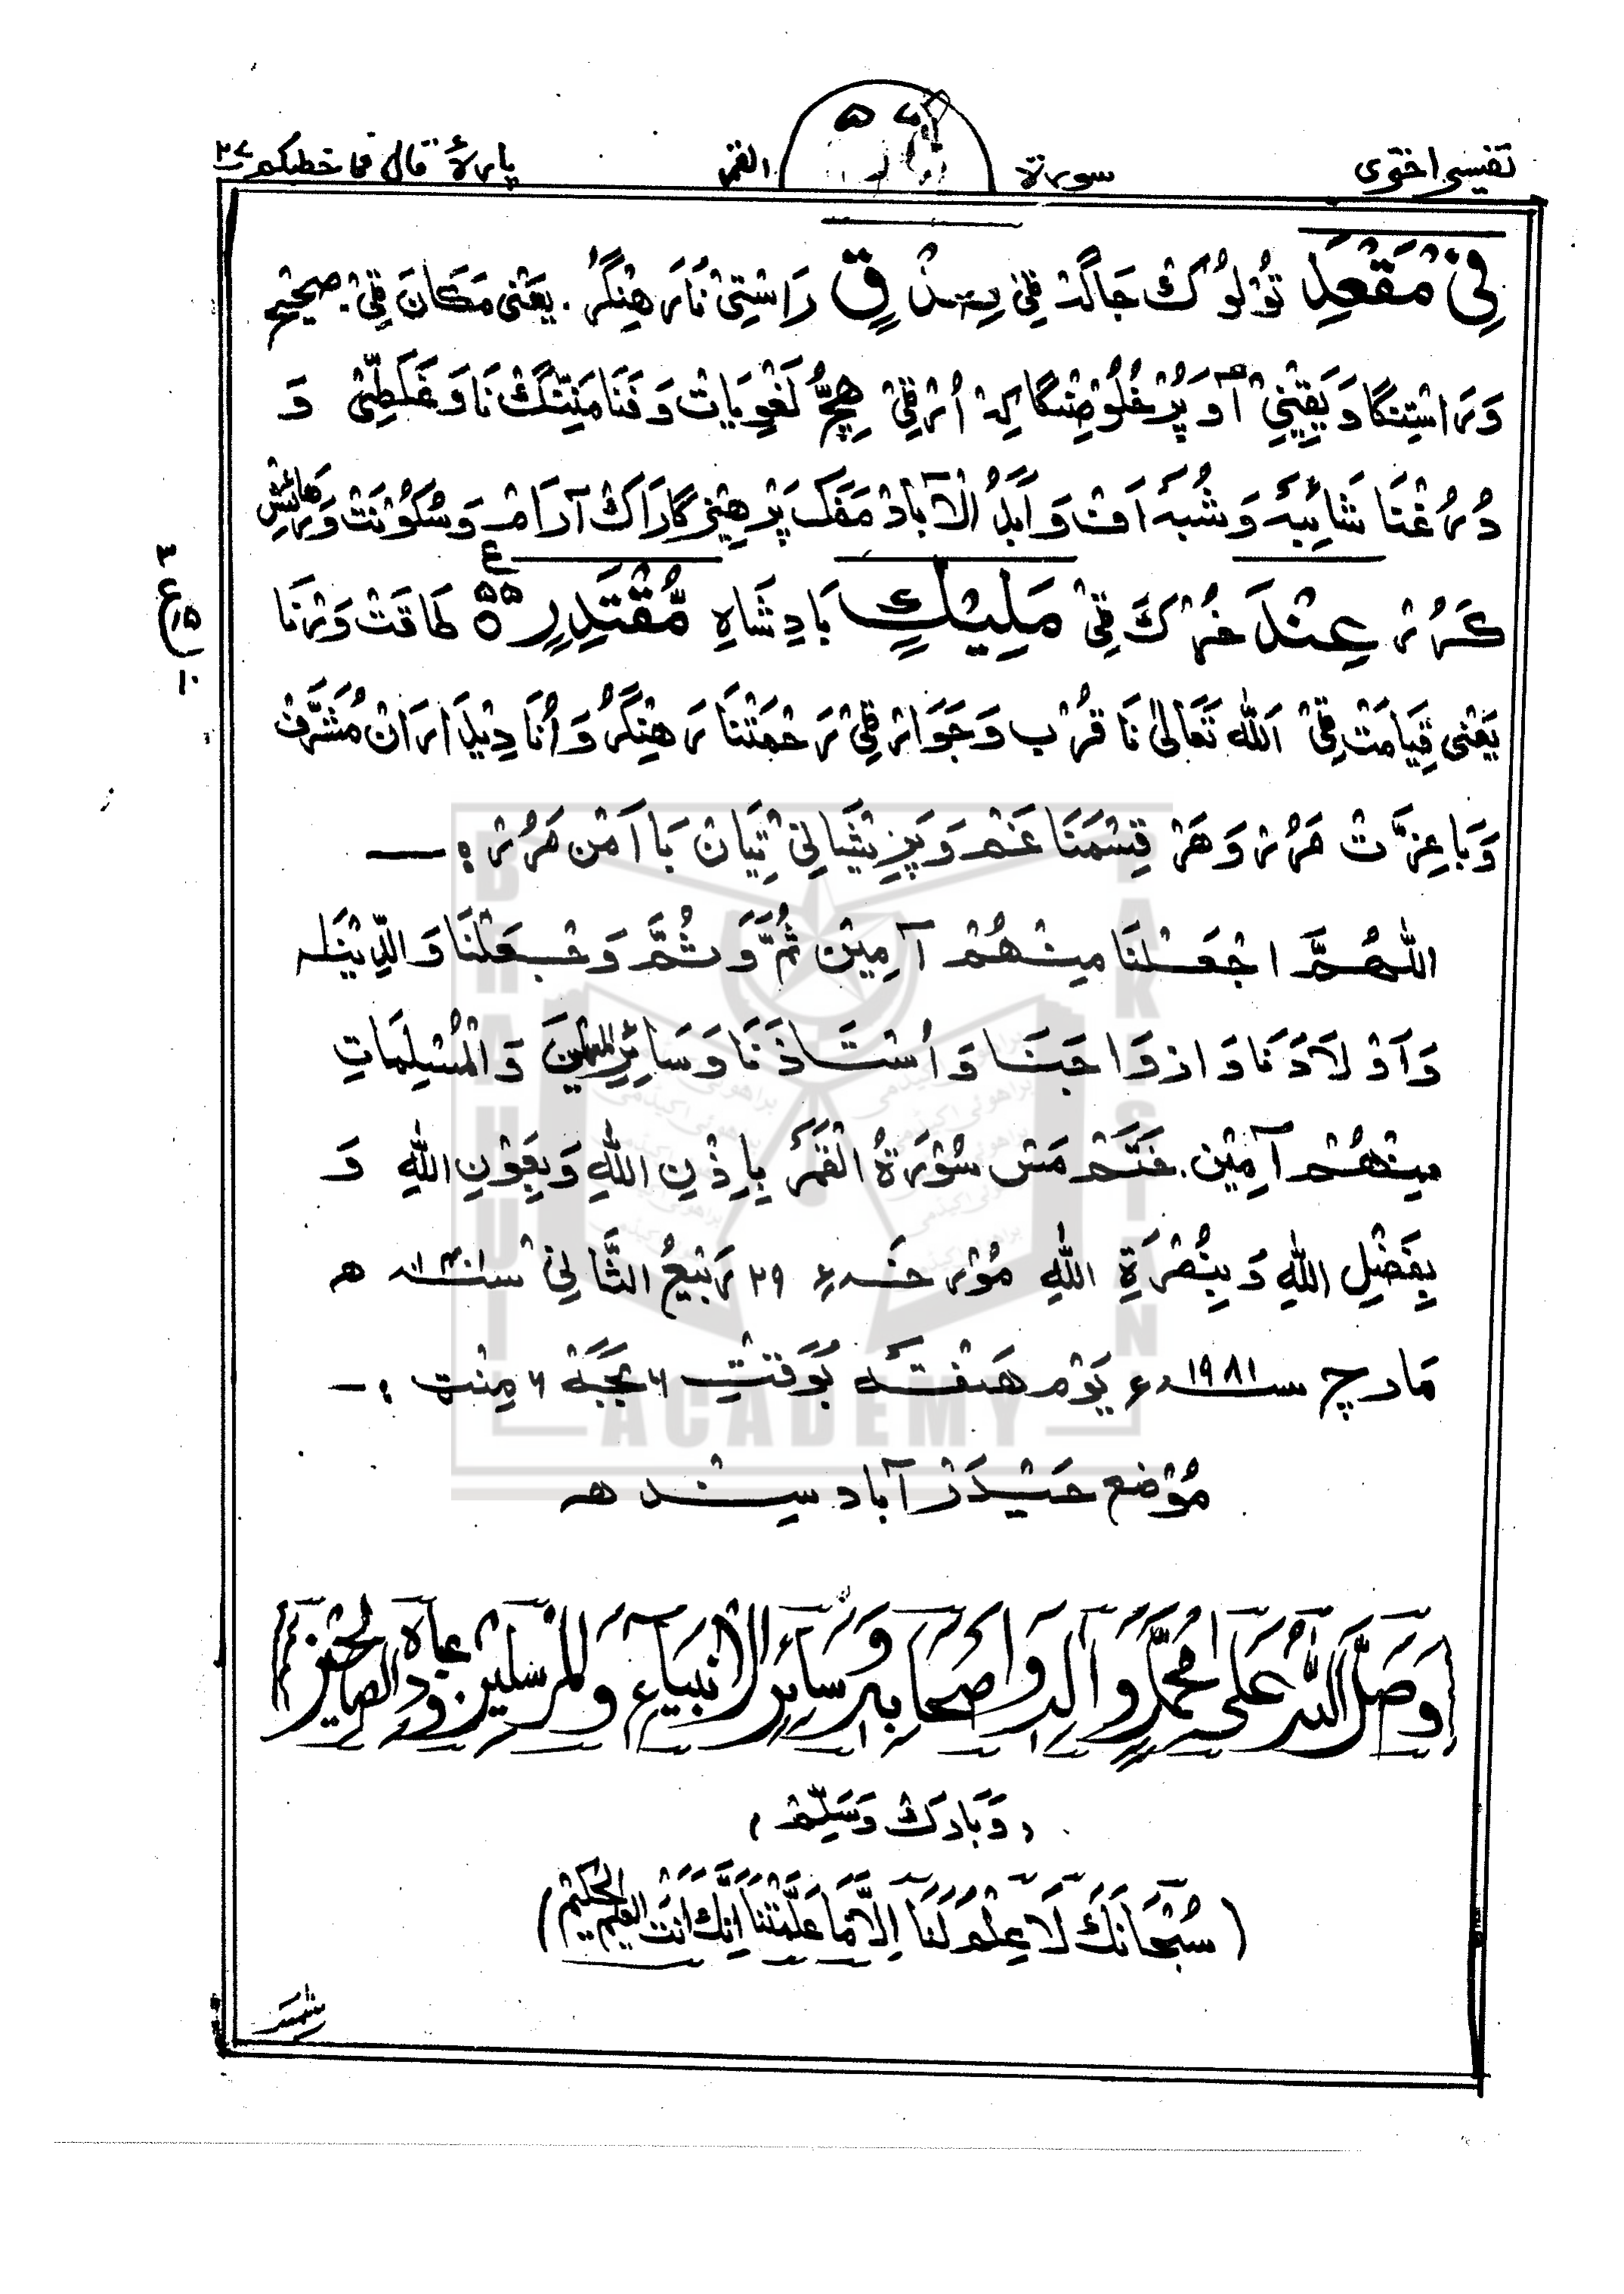 تفسیر اختری سورة القمر پارۀ قال فما خطبکم ۲۷
فِیْ مَقْعَدِ تُوْلُوْک جَاگَہ ٹی صِدْقٍ رَاسْتِیْ نَا رَهِنْگُر. یَعْنِی مَکَان ٹِیْ صحیح
وَرَاسْتِنگَا وَ یَقِیْنِیْ آ وَ پُرْخُلُوْصِنْگَا کِہ اُرْٹِیْ هِچُّ لَغْوِیَات وَ فَنَا مَنِّنگْ نَا وَ غَلَطِّیْ وَ
دُرُغْنَا شَائِبَہ وَ شُبَہ اَفْ وَ اَبَدُ الْآبَادْ مَفَک پَرْهِیْزگَارَاک آرَام وَ سُکُوْنَتْ وَ رِهَائِش
کَرُرْ عِنْدَ خُرْک ٹِیْ مَلِیْكٍ بَادِشَاهِ مُّقْتَدِرٍ ۵۵ طَاقَتْ وَرْنَا
ع
۳
ع ۱۵
۱۰
یَعْنِی قِیَامَتْ ٹِیْ اَللّٰه تَعَالٰی نَا قُرْب وَ جَوَارْ ٹِیْ رَحْمَتْنَا رَهِنْگَرُ وَ اُنَا دِیْدَارَانْ مُشَرَّف
وَ بَا عِزَّتْ مَرُرْ وَ هَرْ قِسْمَنَا غَم وَ پَرِیْشَانِیْ تِیَانْ بَا اَمْن مَرُرْ :—
اللّٰهُمَّ اجْعَلْنَا مِنْهُمْ آمِیْن ثُمَّ وَ ثُمَّ وَجْعَلْنَا وَالِدَیْنَا
وَ اَوْلَادَنَا وَ ازْوَاجَنَا وَ اُسْتَاذَنَا وَ سَائِرِ الْمُسْلِمِیْنَ وَ الْمُسْلِمَاتِ
مِنْهُمْ آمِیْن. خَتَمْ مَس سُوْرَةُ الْقَمَرْ بِاِذْنِ اللّٰهِ وَ بِعَوْنِ اللّٰهِ وَ
بِفَضْلِ اللّٰهِ وَ بِنُصْرَةِ اللّٰهِ مُوْرخَہ ۲۹ رَبِیْعُ الثَّانِیْ سنہ ۱۴۰۱ ھ
مَارچ سنہ ۱۹۸۱ء یَوْم هَفْتَہ بَوَقْتِ ۶ بَجَہ ۶ مِنْٹ :—
مَوْضع حَیْدَرْ آباد سِنْدھ
وَصَلَّ اللّٰهُ عَلٰی مُحَمَّدٍ وَّ آلِہ وَ اَصْحَابِہ وَ سَائِرِ الْاَنْبِیَآءِ وَ الْمُرْسَلِیْن وَ عِبَادِہ الصَّالِحِیْن
، وَبَارِكْ وَسَلِّمْ ،
(سُبْحَانَكَ لَا عِلْمَ لَنَا اِلَّا مَا عَلَّمْتَنَا اِنَّكَ اَنْتَ الْعَلِیْمُ الْحَکِیْم)
BRAHUI ACADEMY PAKISTAN